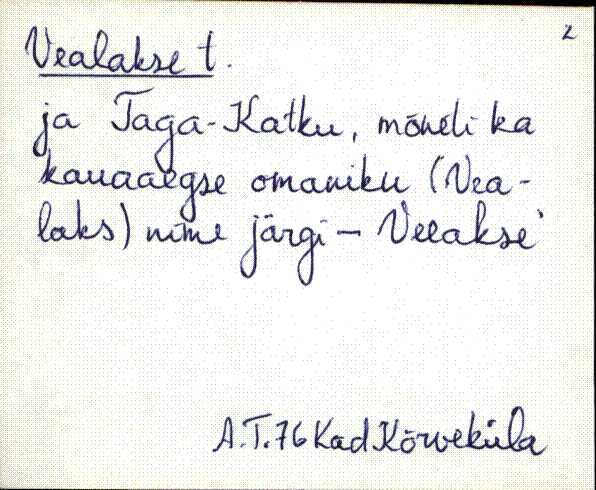 2
Vealakse t.
ja Taga-Katku, mõneti ka
kauaaegse omaniku (Vea-
laks) nime järgi – Veeakse'
A.T.76 Kad Kõrveküla